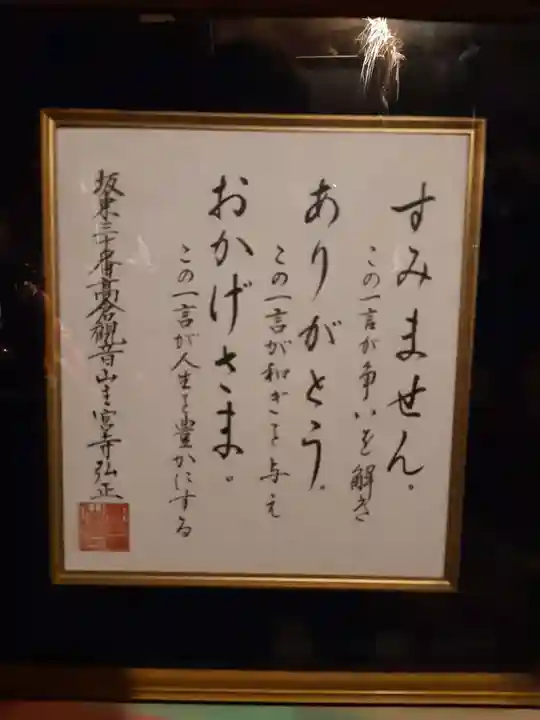 すみません。
この一言が争いを解き
ありがとう。
この一言が和ぎを与え
おかげさま。
この一言が人生を豊かにする
坂東三十番高倉観音山主宮寺弘正